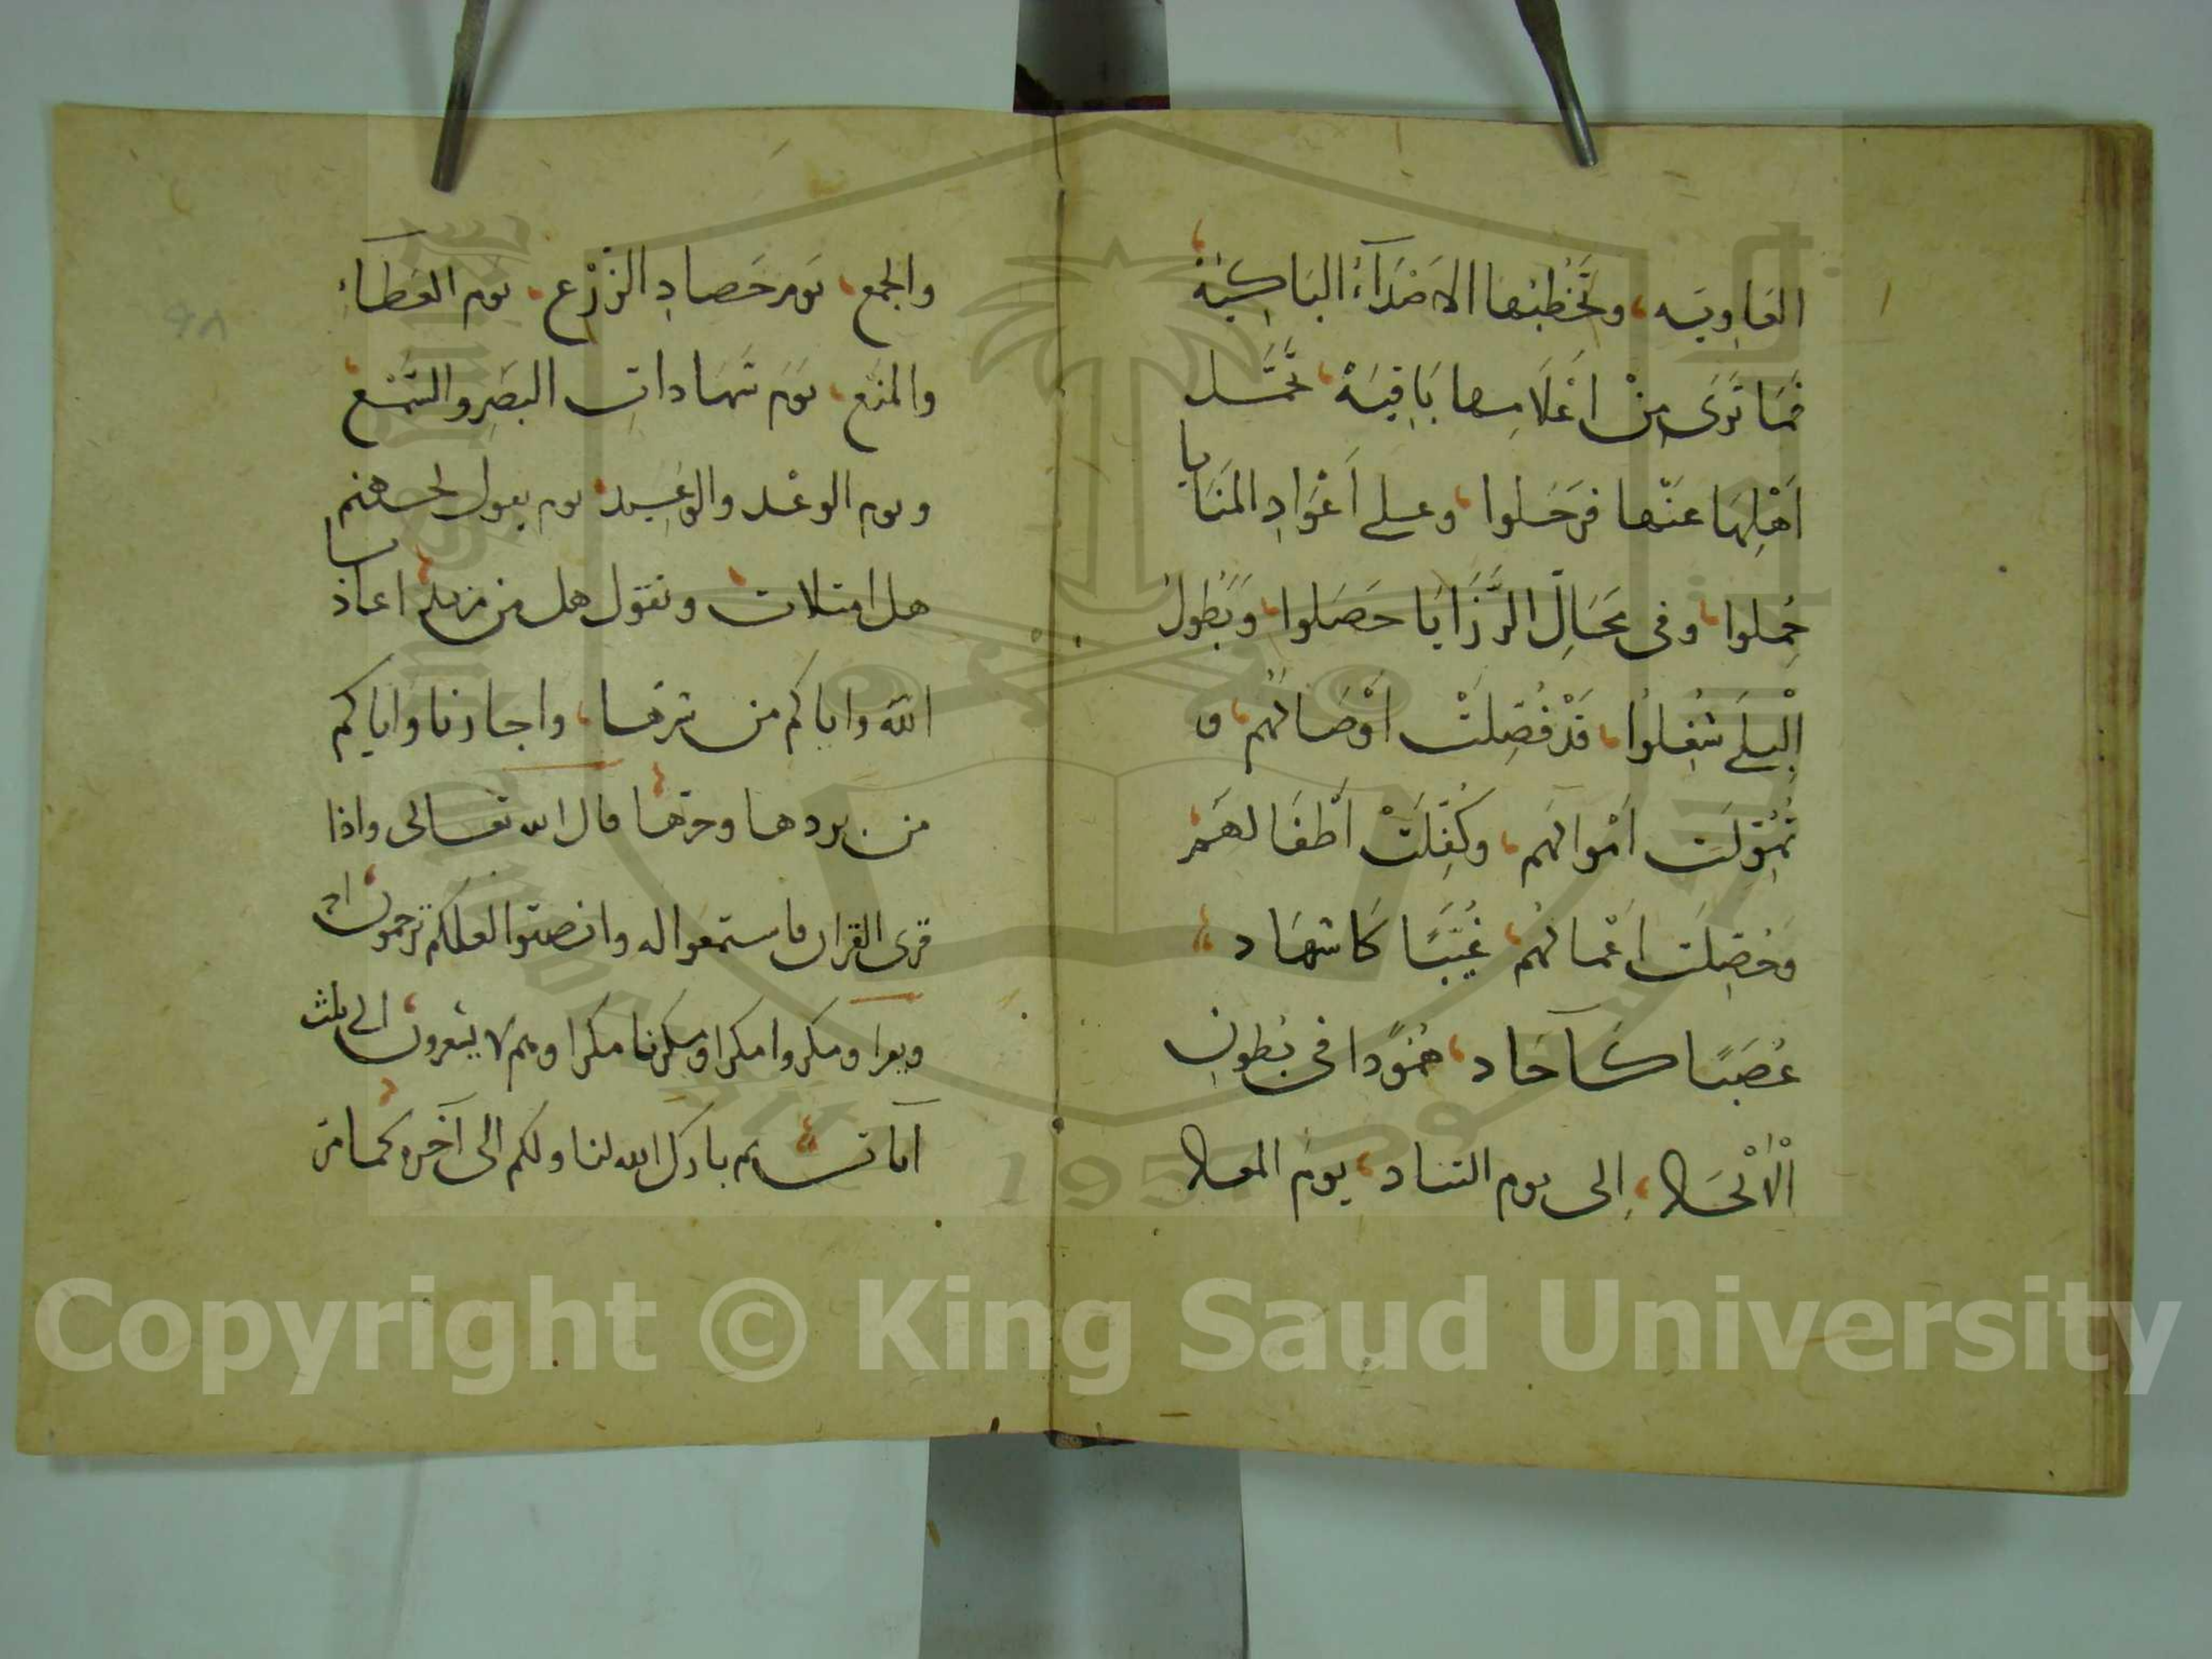 العاوية، وتخطبها الاصداء الباكية،
فَمَا تَرَى مِنْ اَعْلَامِها بَاقِيَةً، تَحَمَّل
اَهْلِهَا عَنْها فرَحَلوا، وعلى اَعْوَادِ المَنَايا
حُمِلوا، وفى مَحَالِّ الرَّزَايَا حَصَلوا، وَبِطُولِ
الْبِلَى شُغِلُوا، قَدْ فُصِلَتْ اَوْصَالُهُم، و
تُمُوِّلَت اَمْوالُهَم، وَكُفِلَتْ اَطْفَالهَم
وَحُصِّلَت اعْمالُهُم، غُيَّبًا كَاشهَاد
عُصَبًا كَآحَاد، هُمُودًا فى بُطونِ
الْاَلْحَاد، اِلى يوم التناد، يومَ المعاد
والجمع، يَوم حَصادِ الزَّرْعِ، يوم العَطَاءِ
والمَنْعِ، يَوْمَ شَهَاداتِ البَصَرِ والسَّمْعِ،
ويوم الوعْد والوَعِيد، يوم يقول لجهنم
هل امتلات، وتقول هل من مزيد اعاذنا
الله واياكم من شرها، واجارنا واياكم
من بردها وحرها قال الله تعالى واذا
قرى القران فاستمعوا له وانصتوا لعلكم ترحمون
ويقرا ومكروا مكرا ومكرنا مكرا وهم لا يشعرون، الى ثلث
آيات ثم بارك الله لنا ولكم الى آخره كما مَر
٩٨
Copyright © King Saud University
1957